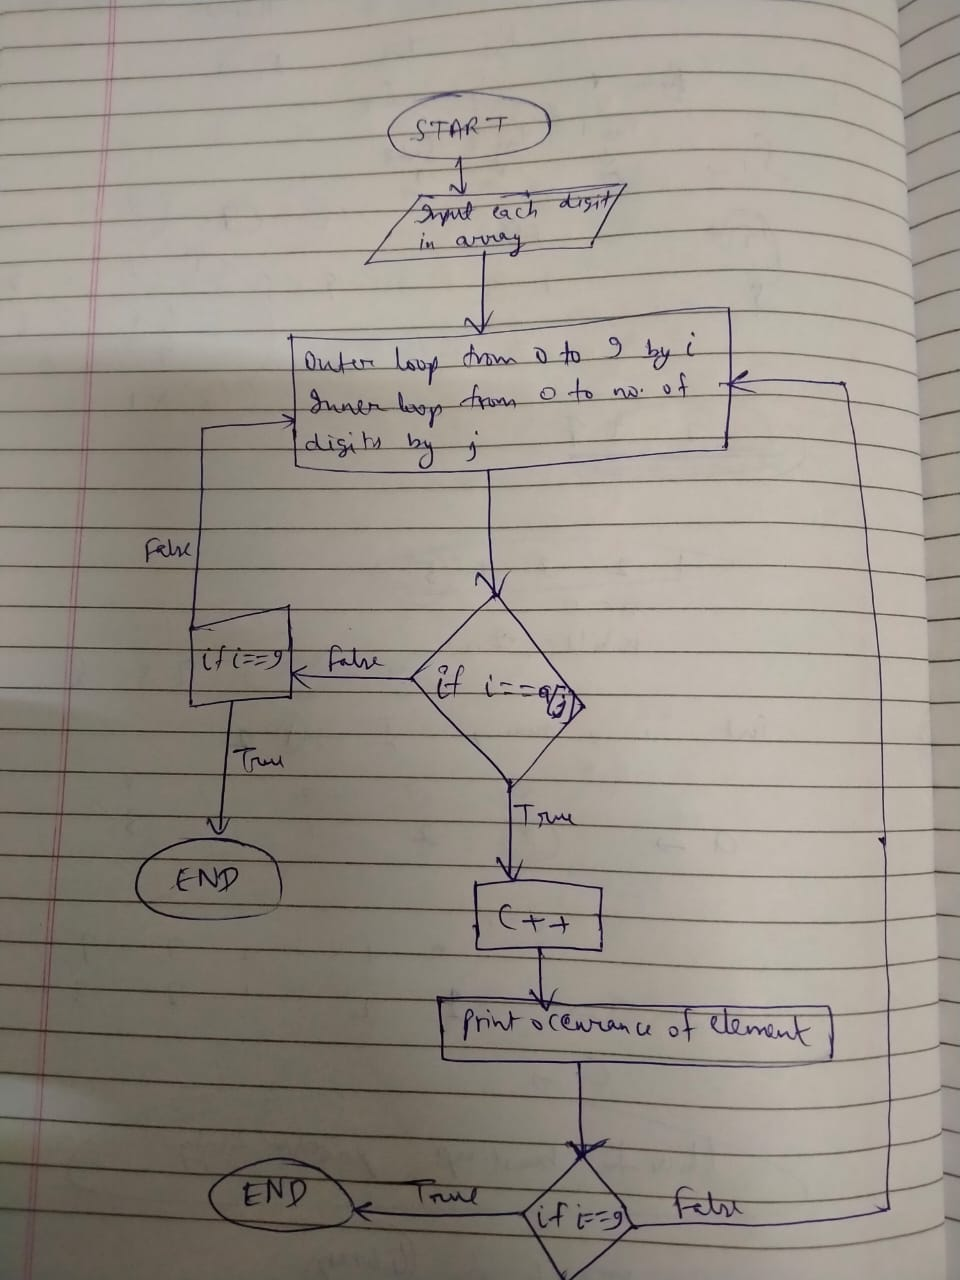 START
Input each digit
in array
Outer loop from 0 to 9 by i
Inner loop from 0 to no. of
digits by j
False
if i==9
False
if i==a[j]
True
True
END
C++
print occurance of element
END
True
if i==9
False